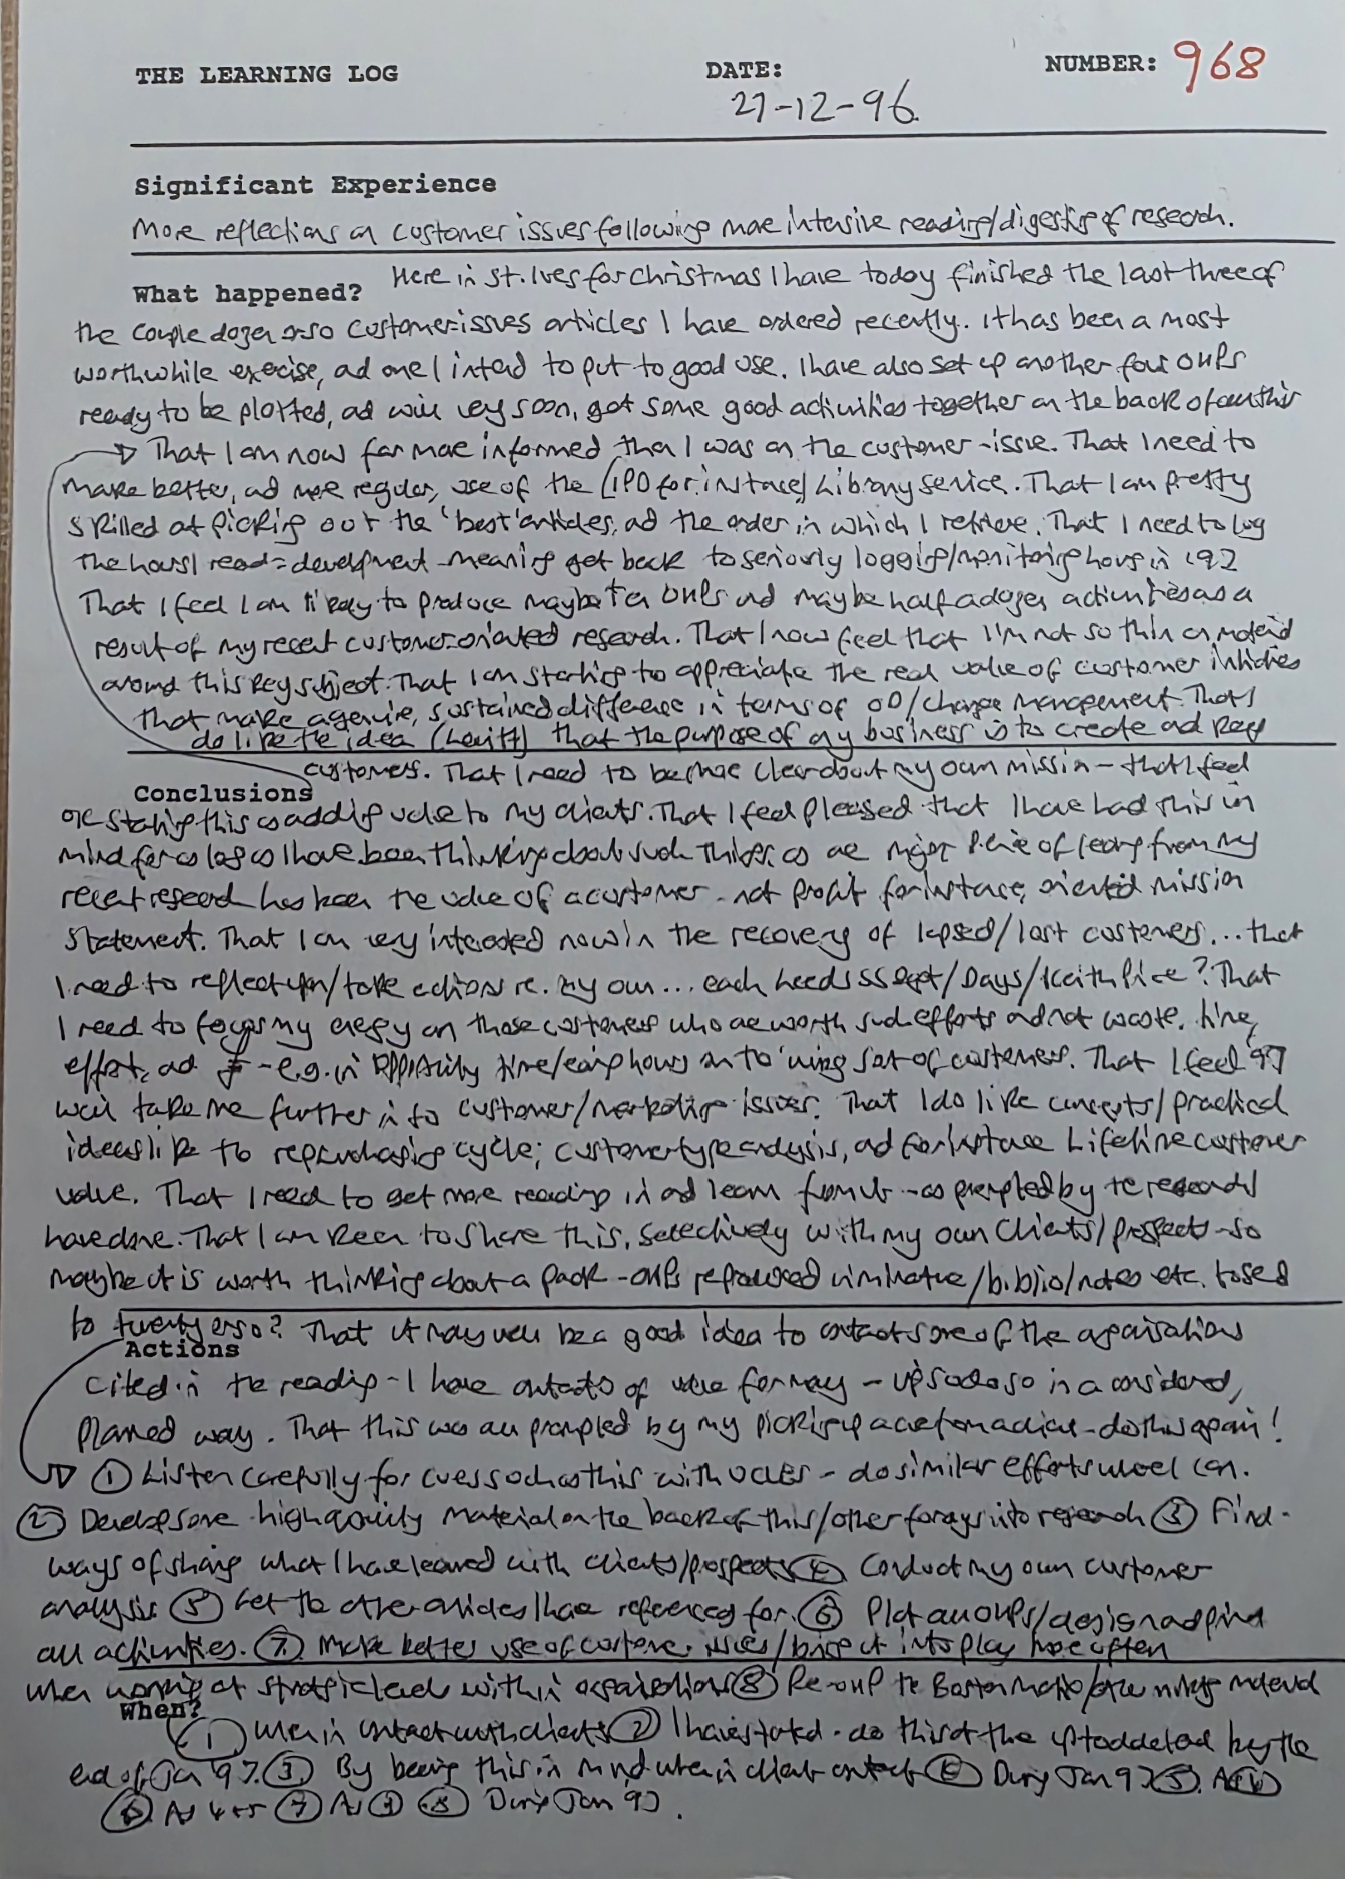 THE LEARNING LOG DATE: NUMBER: 968
27-12-96.
Significant Experience
More reflections on customer issues following more intensive reading/digesting of research.
What happened? Here in St. Ives for Christmas I have today finished the last three of
the couple dozen or so customer-issues articles I have ordered recently. It has been a most
worthwhile exercise, and one I intend to put to good use. I have also set up another four OHPs
ready to be plotted, and will very soon, get some good activities together on the back of all this
That I am now far more informed than I was on the customer-issue. That I need to
make better, and more regular, use of the (IPD for instance) Library service. That I am pretty
skilled at picking out the 'best' articles, and the order in which I retrieve. That I need to log
the hours I read = development - meaning get back to seriously logging/monitoring hours in '97
That I feel I am likely to produce maybe ten OHPs and maybe half a dozen activities as a
result of my recent customer-oriented research. That I now feel that I'm not so thin on material
around this key subject. That I am starting to appreciate the real value of customer initiatives
that make a genuine, sustained difference in terms of OD/change management. That I
do like the idea (Levitt) that the purpose of any business is to create and keep
customers. That I need to be more clear about my own mission - that I feel
Conclusions
OK stating this as adding value to my clients. That I feel pleased that I have had this in
mind for as long as I have been thinking about such things, as one major piece of learning from my
recent research has been the value of a customer - not profit for instance, oriented mission
statement. That I am very interested now in the recovery of lapsed/lost customers... that
I need to reflect upon/take actions re. my own... each needs /Days/Keith Price? That
I need to focus my energy on those customers who are worth such efforts and not waste, time,
effort, and £ - e.g. in opportunity time/earning hours on the 'wrong' set of customers. That I feel '97
will take me further into customer/marketing issues. That I do like concepts/practical
ideas like the repurchasing cycle; customer type analysis, and for instance Lifetime customer
value. That I need to get more reading in and learn from it - as prompted by the research I
have done. That I am keen to share this, selectively with my own clients/prospects - so
maybe it is worth thinking about a pack - OHPs reproduced in miniature/biblio/notes etc. to send
to twenty or so? That it may well be a good idea to contact some of the organisations
Actions
cited in the reading - I have contacts of value for many - I should do so in a considered,
planned way. That this was all prompted by my picking up a cue from a client - do this again!
① Listen carefully for cues such as this with - do similar efforts when I can.
② Develop some high quality material on the back of this/other forays into research ③ Find
ways of sharing what I have learned with clients/prospects ④ Conduct my own customer
analysis ⑤ Get the other articles I have referenced for. ⑥ Plot all OHPs/design and print
all activities. ⑦ Make better use of customer issues/bring it into play more often
when working at strategic level within organisations ⑧ Re-OHP the Boston Matrix/other material
When?
① When in contact with clients ② I have started - do this the by the
end of Jan 97. ③ By keeping this in mind when in client contact ④ During Jan 97 ⑤ As ④
⑥ As 4+5 ⑦ As ③ ⑧ During Jan 97.